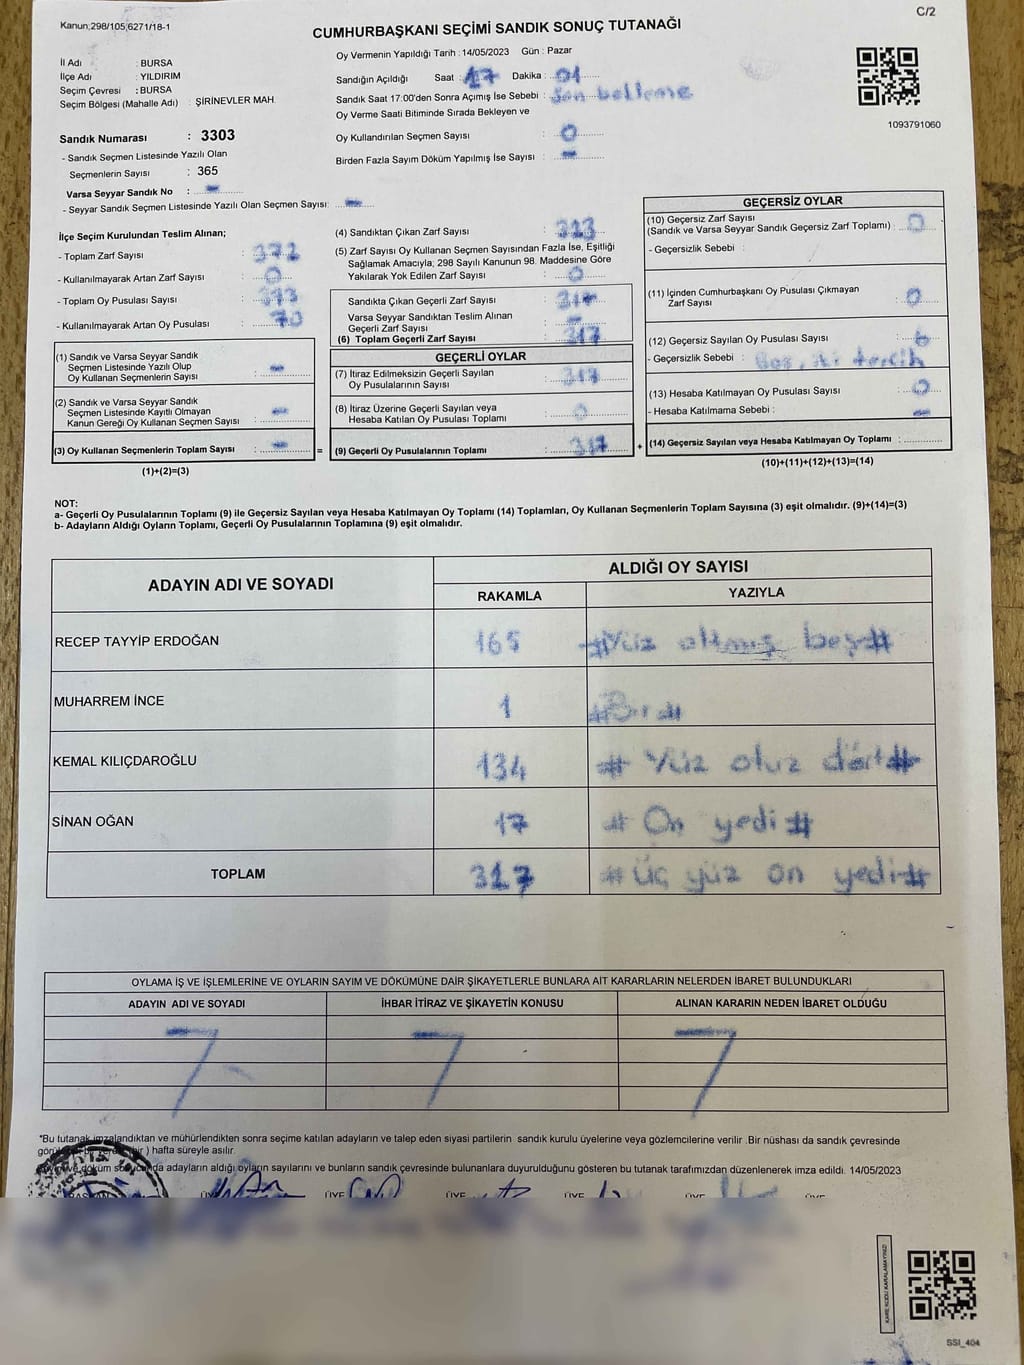 C/2
Kanun;298/105,6271/18-1
CUMHURBAŞKANI SEÇİMİ SANDIK SONUÇ TUTANAĞI
İl Adı : BURSA
İlçe Adı : YILDIRIM
Seçim Çevresi : BURSA
Seçim Bölgesi (Mahalle Adı) : ŞİRİNEVLER MAH.
Sandık Numarası : 3303
- Sandık Seçmen Listesinde Yazılı Olan
Seçmenlerin Sayısı : 365
Varsa Seyyar Sandık No : -
- Seyyar Sandık Seçmen Listesinde Yazılı Olan Seçmen Sayısı: -
Oy Vermenin Yapıldığı Tarih : 14/05/2023 Gün : Pazar
Sandığın Açıldığı Saat : 17 Dakika : 01
Sandık Saat 17:00'den Sonra Açımış İse Sebebi : Son bekleme
Oy Verme Saati Bitiminde Sırada Bekleyen ve
Oy Kullandırılan Seçmen Sayısı : 0
Birden Fazla Sayım Döküm Yapılmış İse Sayısı : -
1093791060
İlçe Seçim Kurulundan Teslim Alınan;
- Toplam Zarf Sayısı : 372
- Kullanılmayarak Artan Zarf Sayısı : 0
- Toplam Oy Pusulası Sayısı : 373
- Kullanılmayarak Artan Oy Pusulası : 70
(1) Sandık ve Varsa Seyyar Sandık
Seçmen Listesinde Yazılı Olup
Oy Kullanan Seçmenlerin Sayısı : -
(2) Sandık ve Varsa Seyyar Sandık
Seçmen Listesinde Kayıtlı Olmayan
Kanun Gereği Oy Kullanan Seçmen Sayısı : -
(3) Oy Kullanan Seçmenlerin Toplam Sayısı : -
(1)+(2)=(3)
=
(4) Sandıktan Çıkan Zarf Sayısı : 323
(5) Zarf Sayısı Oy Kullanan Seçmen Sayısından Fazla İse, Eşitliği
Sağlamak Amacıyla; 298 Sayılı Kanunun 98. Maddesine Göre
Yakılarak Yok Edilen Zarf Sayısı : 0
Sandıkta Çıkan Geçerli Zarf Sayısı : 317
Varsa Seyyar Sandıktan Teslim Alınan
Geçerli Zarf Sayısı : -
(6) Toplam Geçerli Zarf Sayısı : 317
GEÇERLİ OYLAR
(7) İtiraz Edilmeksizin Geçerli Sayılan
Oy Pusulalarının Sayısı : 317
(8) İtiraz Üzerine Geçerli Sayılan veya
Hesaba Katılan Oy Pusulası Toplamı : 0
(9) Geçerli Oy Pusulalarının Toplamı : 317
+
GEÇERSİZ OYLAR
(10) Geçersiz Zarf Sayısı
(Sandık ve Varsa Seyyar Sandık Geçersiz Zarf Toplamı) : 0
- Geçersizlik Sebebi :
(11) İçinden Cumhurbaşkanı Oy Pusulası Çıkmayan
Zarf Sayısı : 0
(12) Geçersiz Sayılan Oy Pusulası Sayısı : 6
- Geçersizlik Sebebi : Boş, iki tercih
(13) Hesaba Katılmayan Oy Pusulası Sayısı : 0
- Hesaba Katılmama Sebebi : -
(14) Geçersiz Sayılan veya Hesaba Katılmayan Oy Toplamı :
(10)+(11)+(12)+(13)=(14)
NOT:
a- Geçerli Oy Pusulalarının Toplamı (9) ile Geçersiz Sayılan veya Hesaba Katılmayan Oy Toplamı (14) Toplamları, Oy Kullanan Seçmenlerin Toplam Sayısına (3) eşit olmalıdır. (9)+(14)=(3)
b- Adayların Aldığı Oyların Toplamı, Geçerli Oy Pusulalarının Toplamına (9) eşit olmalıdır.
ADAYIN ADI VE SOYADI
ALDIĞI OY SAYISI
RAKAMLA YAZIYLA
RECEP TAYYİP ERDOĞAN 165 #Yüz altmış beş#
MUHARREM İNCE 1 #Bir#
KEMAL KILIÇDAROĞLU 134 # Yüz otuz dört#
SİNAN OĞAN 17 # On yedi #
TOPLAM 317 # Üç yüz on yedi #
OYLAMA İŞ VE İŞLEMLERİNE VE OYLARIN SAYIM VE DÖKÜMÜNE DAİR ŞİKAYETLERLE BUNLARA AİT KARARLARIN NELERDEN İBARET BULUNDUKLARI
ADAYIN ADI VE SOYADI İHBAR İTİRAZ VE ŞİKAYETİN KONUSU ALINAN KARARIN NEDEN İBARET OLDUĞU
*Bu tutanak imzalandıktan ve mühürlendikten sonra seçime katılan adayların ve talep eden siyasi partilerin sandık kurulu üyelerine veya gözlemcilerine verilir .Bir nüshası da sandık çevresinde
) hafta süreyle asılır.
döküm adayların aldığı oyların sayılarını ve bunların sandık çevresinde bulunanlara duyurulduğunu gösteren bu tutanak tarafımızdan düzenlenerek imza edildi. 14/05/2023
ÜYE ÜYE ÜYE ÜYE ÜYE
KARE KODU KARALAMAYINIZ!
SSI_404